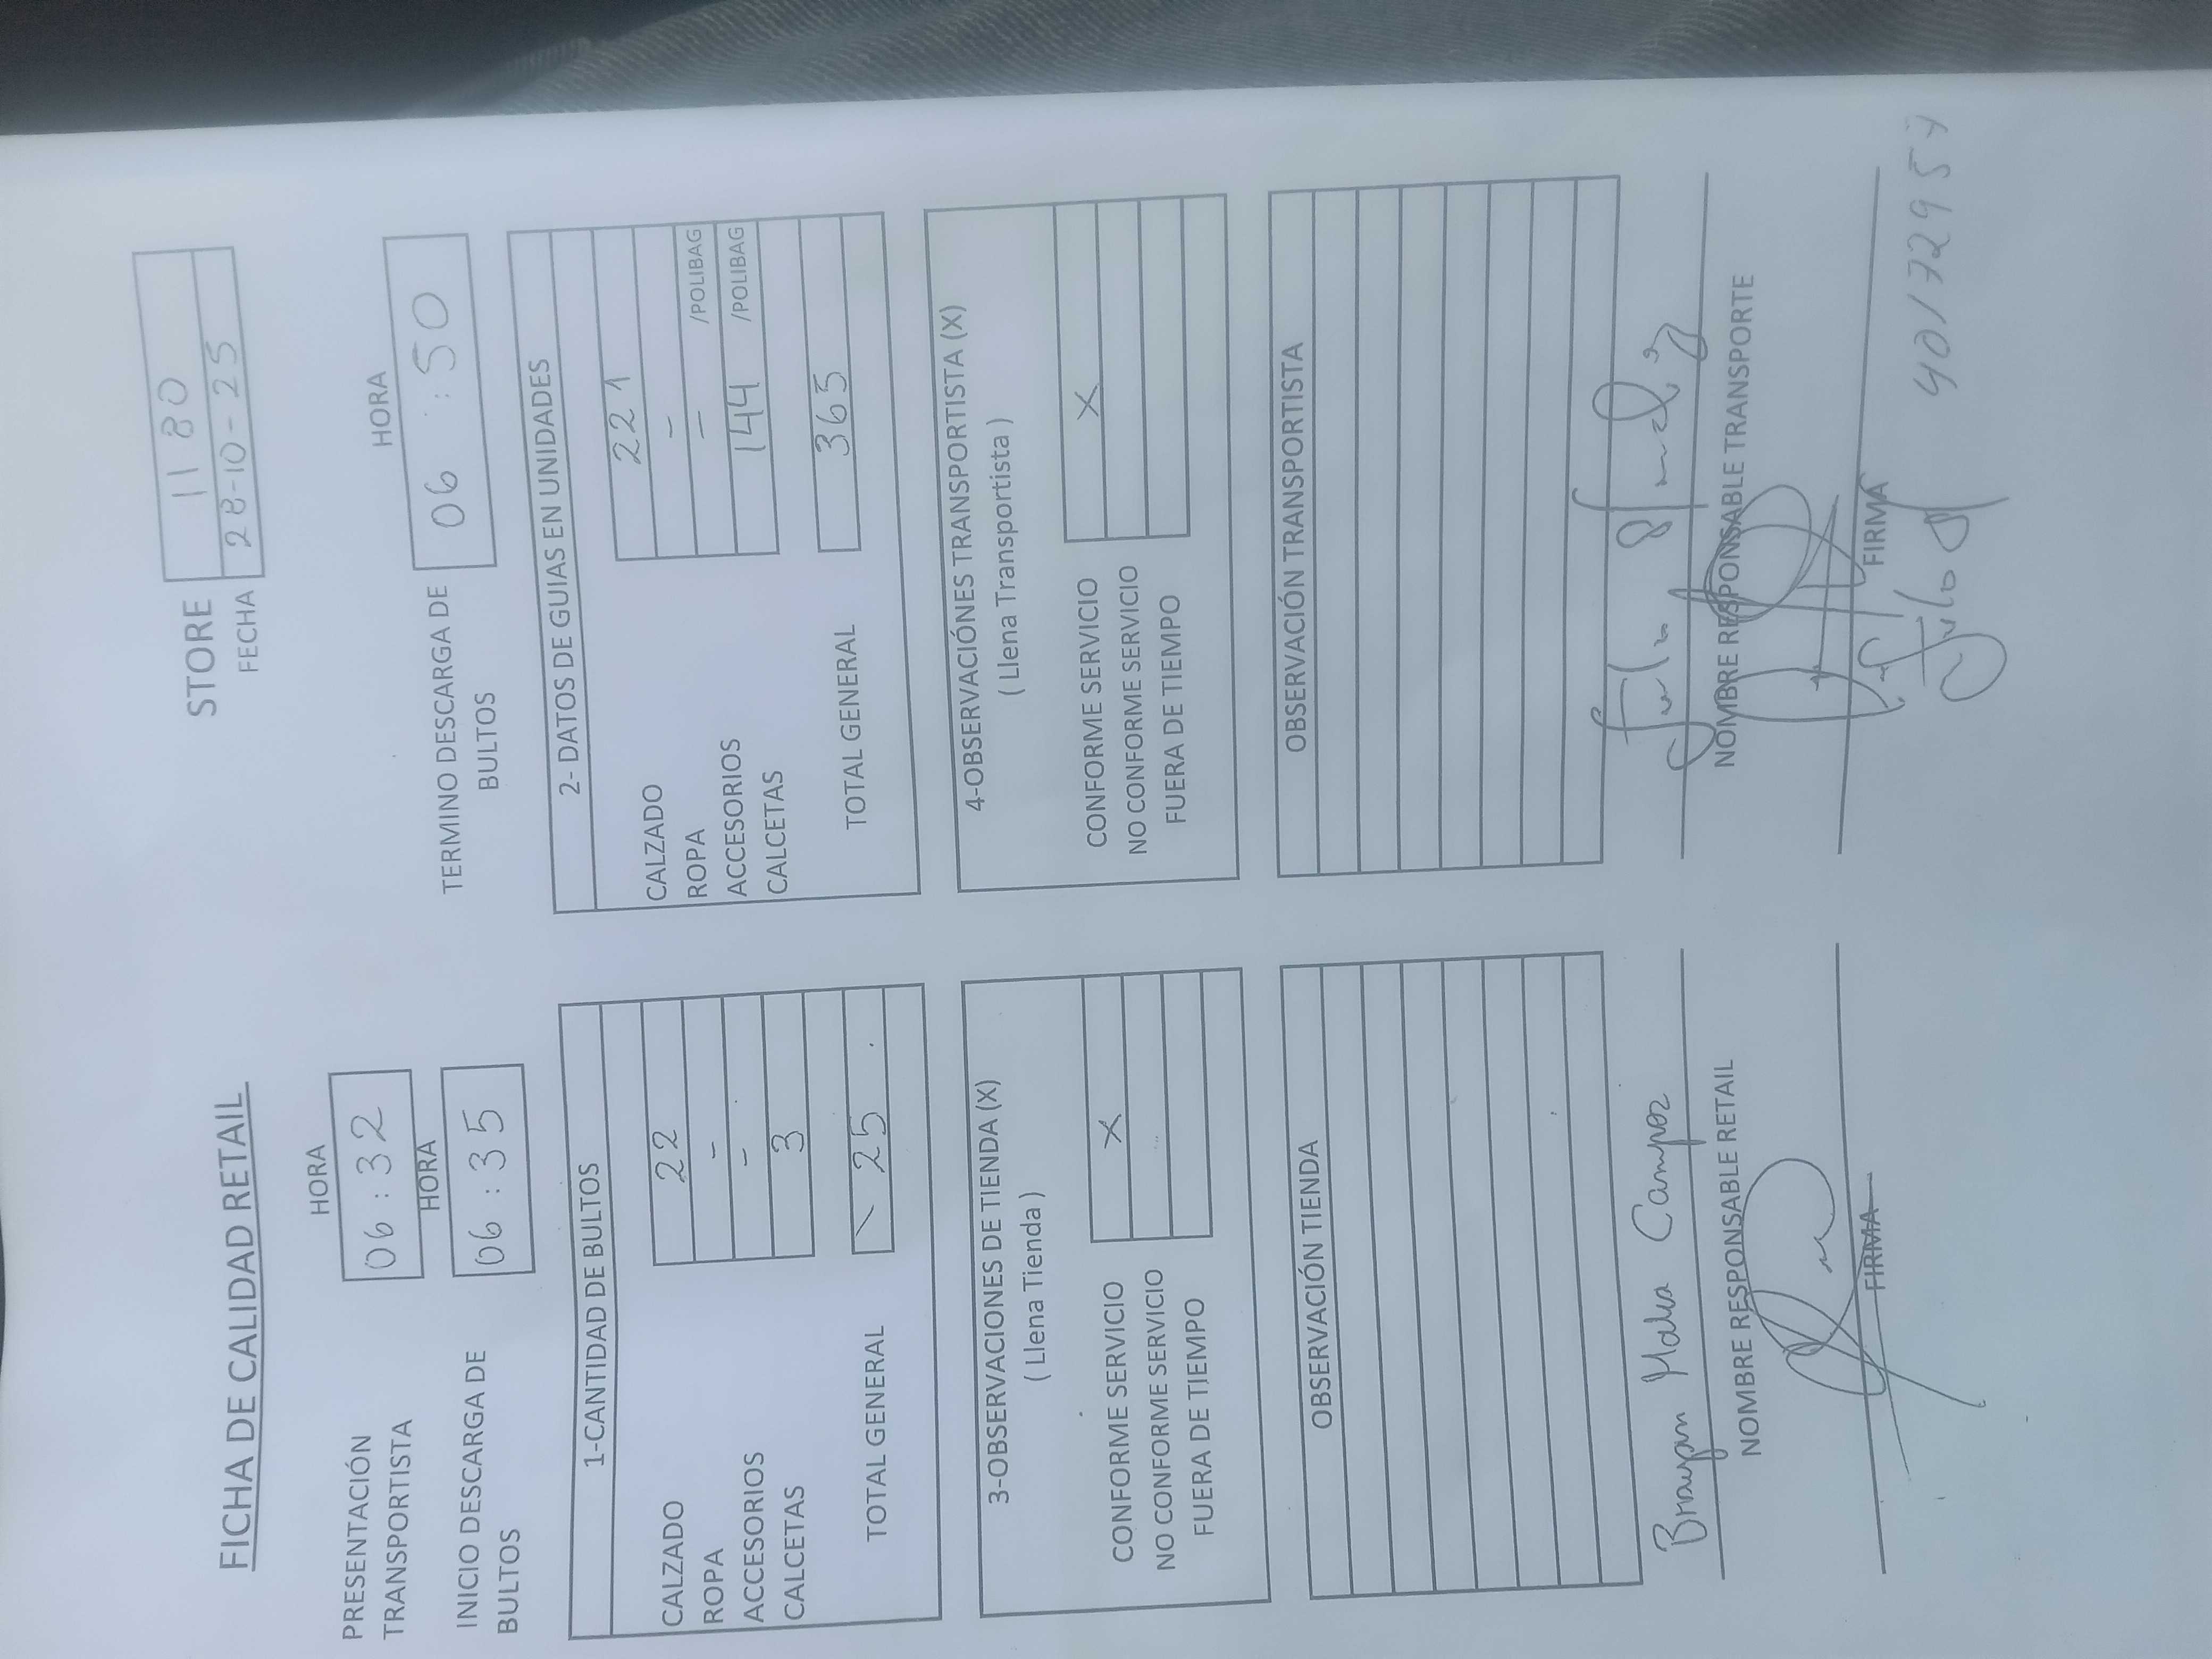 FICHA DE CALIDAD RETAIL
STORE 11 80
FECHA 28-10-25
HORA
PRESENTACIÓN TRANSPORTISTA 06 : 32
HORA
INICIO DESCARGA DE BULTOS 06 : 35
HORA
TERMINO DESCARGA DE BULTOS 06 : 50
1-CANTIDAD DE BULTOS
CALZADO 22
ROPA -
ACCESORIOS -
CALCETAS 3
TOTAL GENERAL 25
2- DATOS DE GUIAS EN UNIDADES
CALZADO 221
ROPA -
ACCESORIOS - /POLIBAG
CALCETAS 144 /POLIBAG
TOTAL GENERAL 365
3-OBSERVACIONES DE TIENDA (X)
( Llena Tienda )
CONFORME SERVICIO X
NO CONFORME SERVICIO
FUERA DE TIEMPO
4-OBSERVACIÓNES TRANSPORTISTA (X)
( Llena Transportista )
CONFORME SERVICIO X
NO CONFORME SERVICIO
FUERA DE TIEMPO
OBSERVACIÓN TIENDA
OBSERVACIÓN TRANSPORTISTA
Brayan Campos
NOMBRE RESPONSABLE RETAIL
FIRMA
Julio
NOMBRE RESPONSABLE TRANSPORTE
FIRMA
40172957